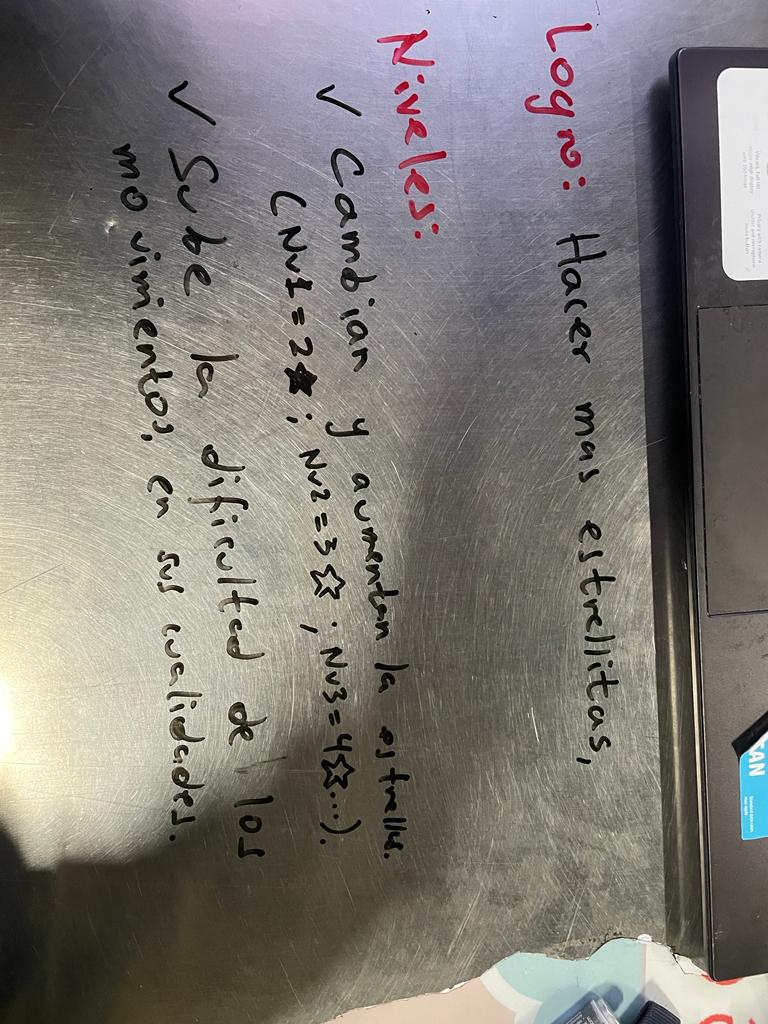 Logro: Hacer mas estrellitas,
Niveles:
✓ Cambian y aumentan la estrellas.
(Nv1=2★; Nv2=3☆; Nv3=4☆...).
✓ Sube la dificultad de los
movimientos, en sus cualidades.
TAN